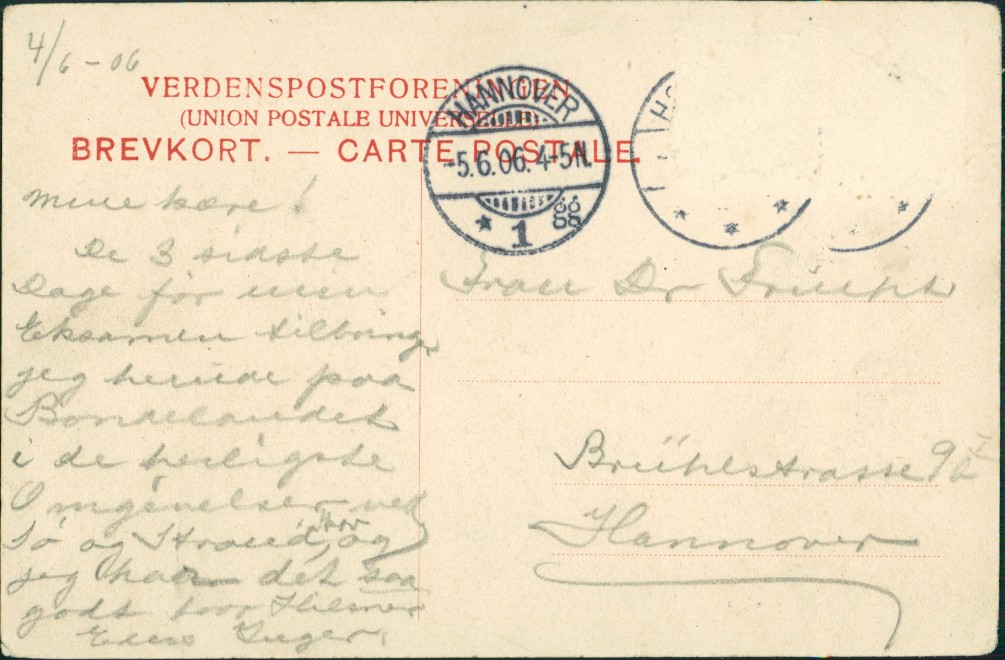 4/6 - 06
VERDENSPOSTFORENINGEN
(UNION POSTALE UNIVERSELLE)
BREVKORT. — CARTE POSTALE.
HANNOVER
-5.6.06. 4-5N.
* 1 gg
Mine kære!
De 3 sidste
Dage før min
Eksamen tilbringer
jeg herude paa
Bondelandet
i de heiligste
Omgivelser ved
Sø og Strand, Skov og
jeg har det saa
godt
Inger.
Frau Dr
Brühlstrasse 9
Hannover